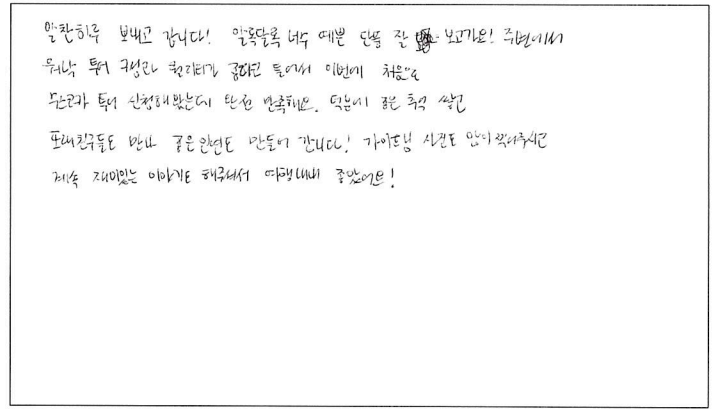 알찬하루 보내고 갑니다! 알록달록 너무 예쁜 단풍 잘 보고가요! 주변에서
워낙 투어 구성과 퀄리티가 좋다고 들어서 이번에 처음으로
투어 신청해봤는데 완전 만족해요. 덕분에 좋은 추억 쌓고
또래친구들도 만나 좋은인연도 만들어 갑니다! 가이드님 사진도 많이 찍어주시고
계속 재미있는 이야기도 해주셔서 여행내내 좋았어요!